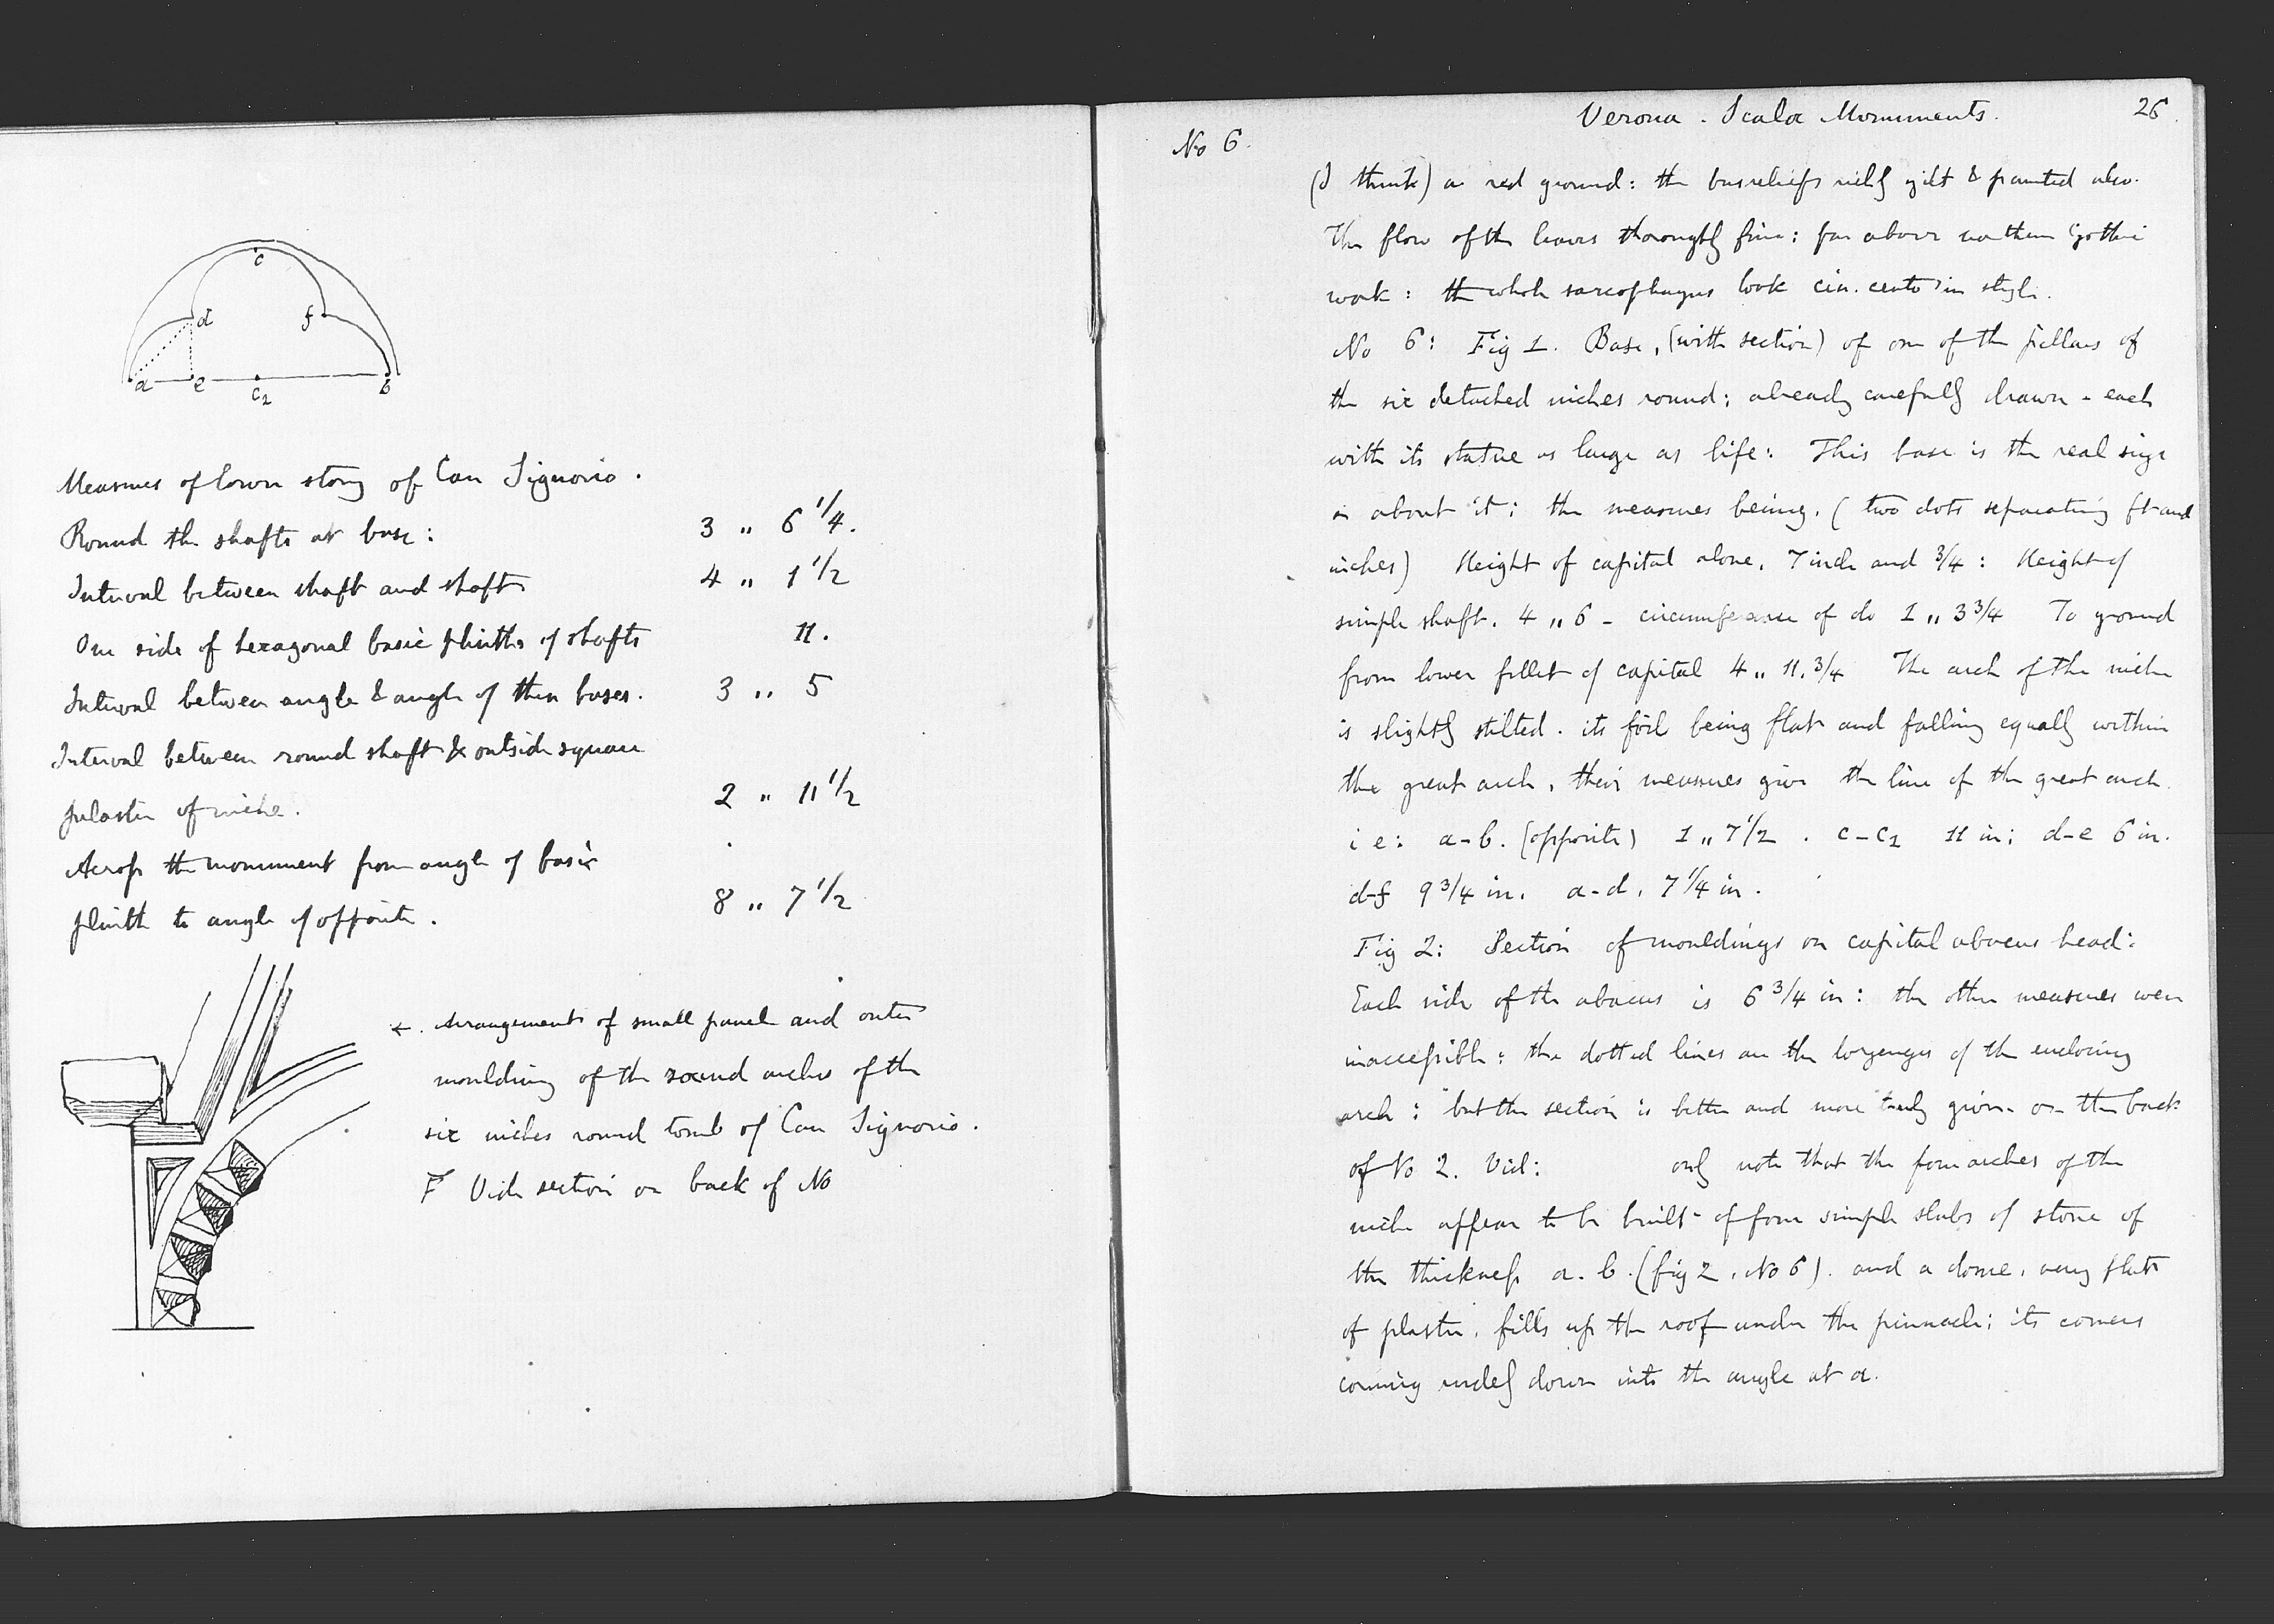 c
d
f
a e c2 b
Measures of lower story of Can Signorio.
Round the shafts at base: 3 " 6 1/4.
Interval between shaft and shaft 4 " 1 1/2
One side of hexagonal basic plinths of shafts 11.
Interval between angle & angle of these bases. 3 " 5
Interval between round shaft & outside square
pilaster of niche. 2 " 11 1/2
Across the monument from angle of basic
plinth to angle of opposite. 8 " 7 1/2
←. Arrangement of small panel and outer
moulding of the round arches of the
six niches round tomb of Can Signorio.
F Vide section on back of No
Verona. Scala Monuments. 26.
No 6.
(I think) a red ground: the basreliefs richly gilt & painted also.
The flow of the leaves thoroughly fine: far above northern Gothic
work: the whole sarcophagus look cin. cento in style.
No 6: Fig 1. Base, (with section) of one of the pillars of
the six detached niches round; already carefully drawn - each
with its statue as large as life: This base is the real size
or about it; the measures being, (two dots separating ft and
inches) Height of capital alone, 7 inch and 3/4: Height of
simple shaft. 4 " 6 - circumference of do 1 " 3 3/4 To ground
from lower fillet of capital 4 " 11. 3/4 The arch of the niche
is slightly stilted. its foil being flat and falling equally within
the great arch, their measures give the line of the great arch.
i e: a-b. (opposite) 1 " 7 1/2. c-c2 11 in; d-e 6 in.
d-f 9 3/4 in. a-d. 7 1/4 in.
Fig 2: Section of mouldings on capital abacus head:
Each side of the abacus is 6 3/4 in: the other measures were
inaccessible: the dotted lines are the lozenges of the enclosing
arch: but the section is better and more truly given on the back
of No 2. Vid: only note that the four arches of the
niche appear to be built of four simple slabs of stone of
the thickness a. b. (fig 2, No 6). and a dome, very flat
of plaster, fills up the roof under the pinnacle; its corners
coming rudely down into the angle at a.